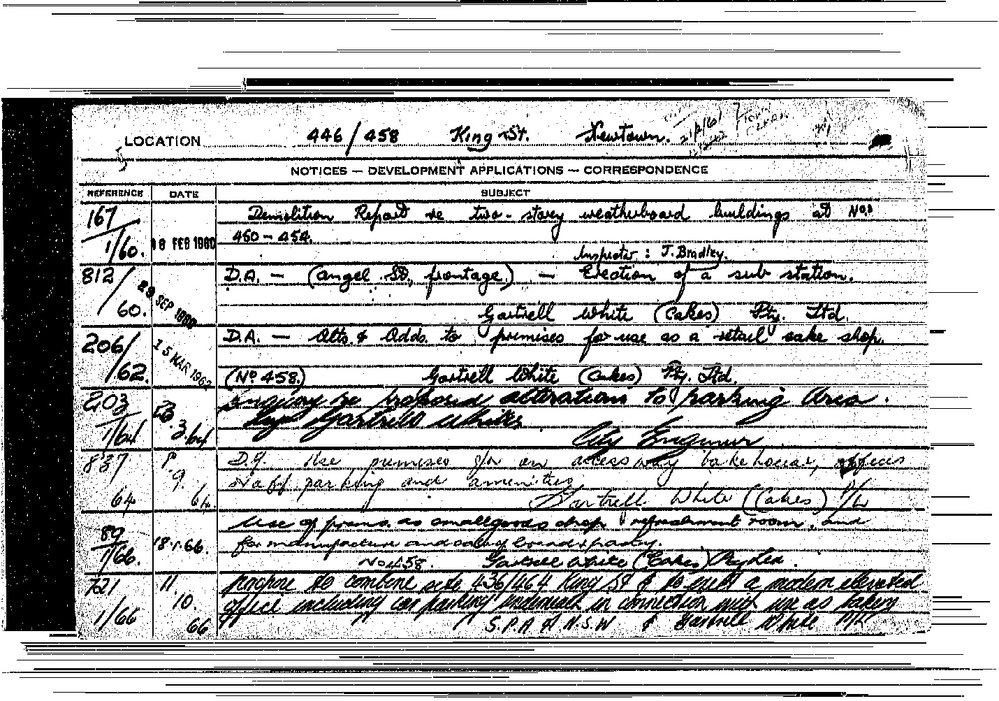 LOCATION 446/458 King St. Newtown. 21/2/61
NOTICES — DEVELOPMENT APPLICATIONS — CORRESPONDENCE
REFERENCE DATE SUBJECT
167 Demolition Report re two-storey weatherboard buildings at Nos
1/60. 18 FEB 1960 460-454.
Inspector: J. Bradley.
812 D.A. — (Angel St. frontage) — Erection of a sub station.
60. SEP 1960 Gartrell White (Cakes) Pty. Ltd.
206 D.A. — Alts. & Adds. to premises for use as a retail cake shop.
/62. 15 MAR 1962 (No 458.) Gartrell White (Cakes) Pty. Ltd.
203 Enquiry re proposed alterations to parking area.
1/64 3.64 by Gartrells Whites
City Engineer
837 9. D.A. Use premises for an access way bakehouse, offices
64 64. staff parking and amenities
Gartrell White (Cakes) P/L
89 Use of prems. as smallgoods shop & refreshment room, and
1/66. 18.1.66. for manufacture and sale of bread & pastry.
No 458. Gartrell White (Cakes)
721 11. Propose to combine site 436/464 King St & to erect a modern elevated
10. office including car parking underneath in connection with use as bakery
1/66 66 S.P.A of N.S.W & Gartrell White P/L